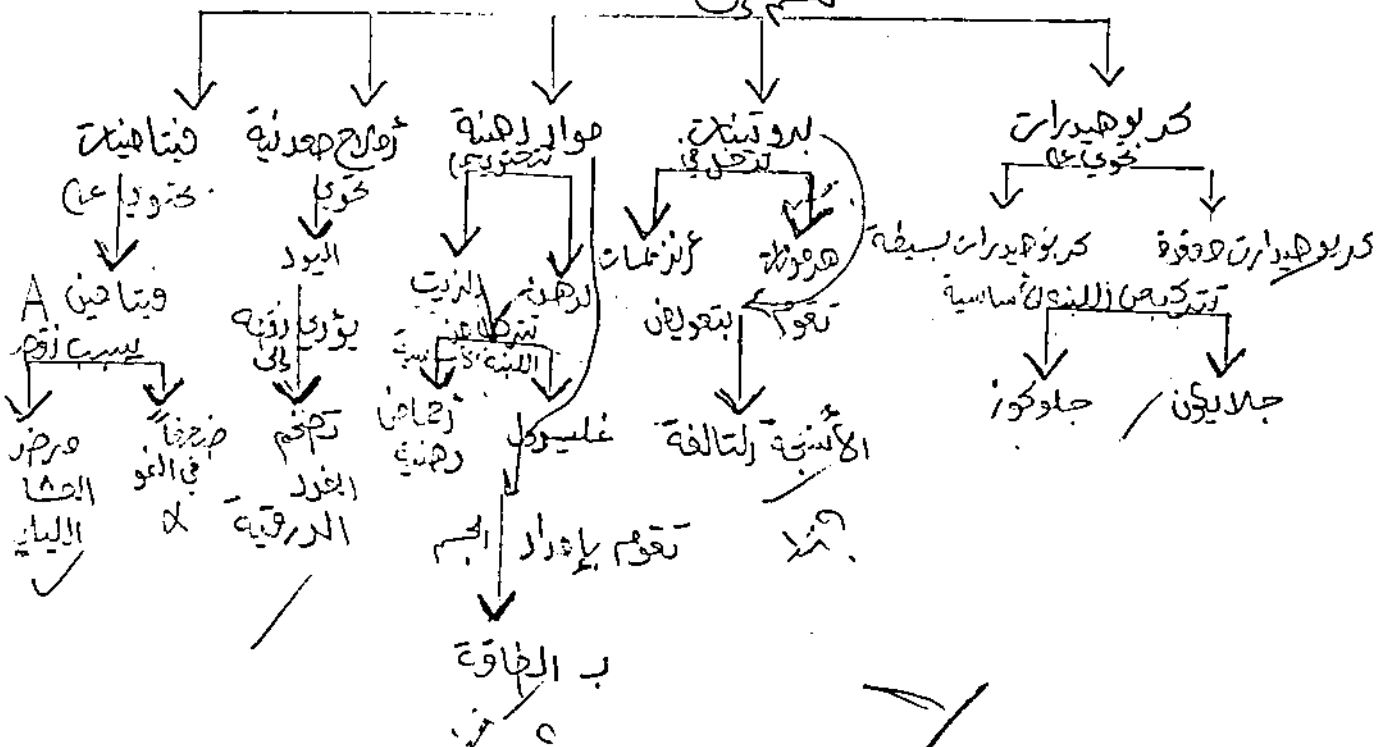 تقسم إلى
كربوهيدرات
تحوي على
كربوهيدارت معقدة
كربوهيدرات بسيطة
تتركب من اللبنة الأساسية
جلايكون
جلوكوز
بروتينات
تدخل في
هرمونات
أنزيمات
تقوم بتعويض
الأنسجة التالفة
مواد دهنية
تحتوي على
الدهنة
الزيت
تتركب من
اللبنة الأساسية
غليسرول
أحماض
دهنية
تقوم بإمداد الجسم
ب الطاقة
أملاح معدنية
تحوي
اليود
يؤدي نقصه
إلى
تضخم
الغدد
الدرقية
فيتامينات
تحتوي على
فيتامين A
يسبب نقص
ضعفاً
في النمو
مرض
العشا
الليلي